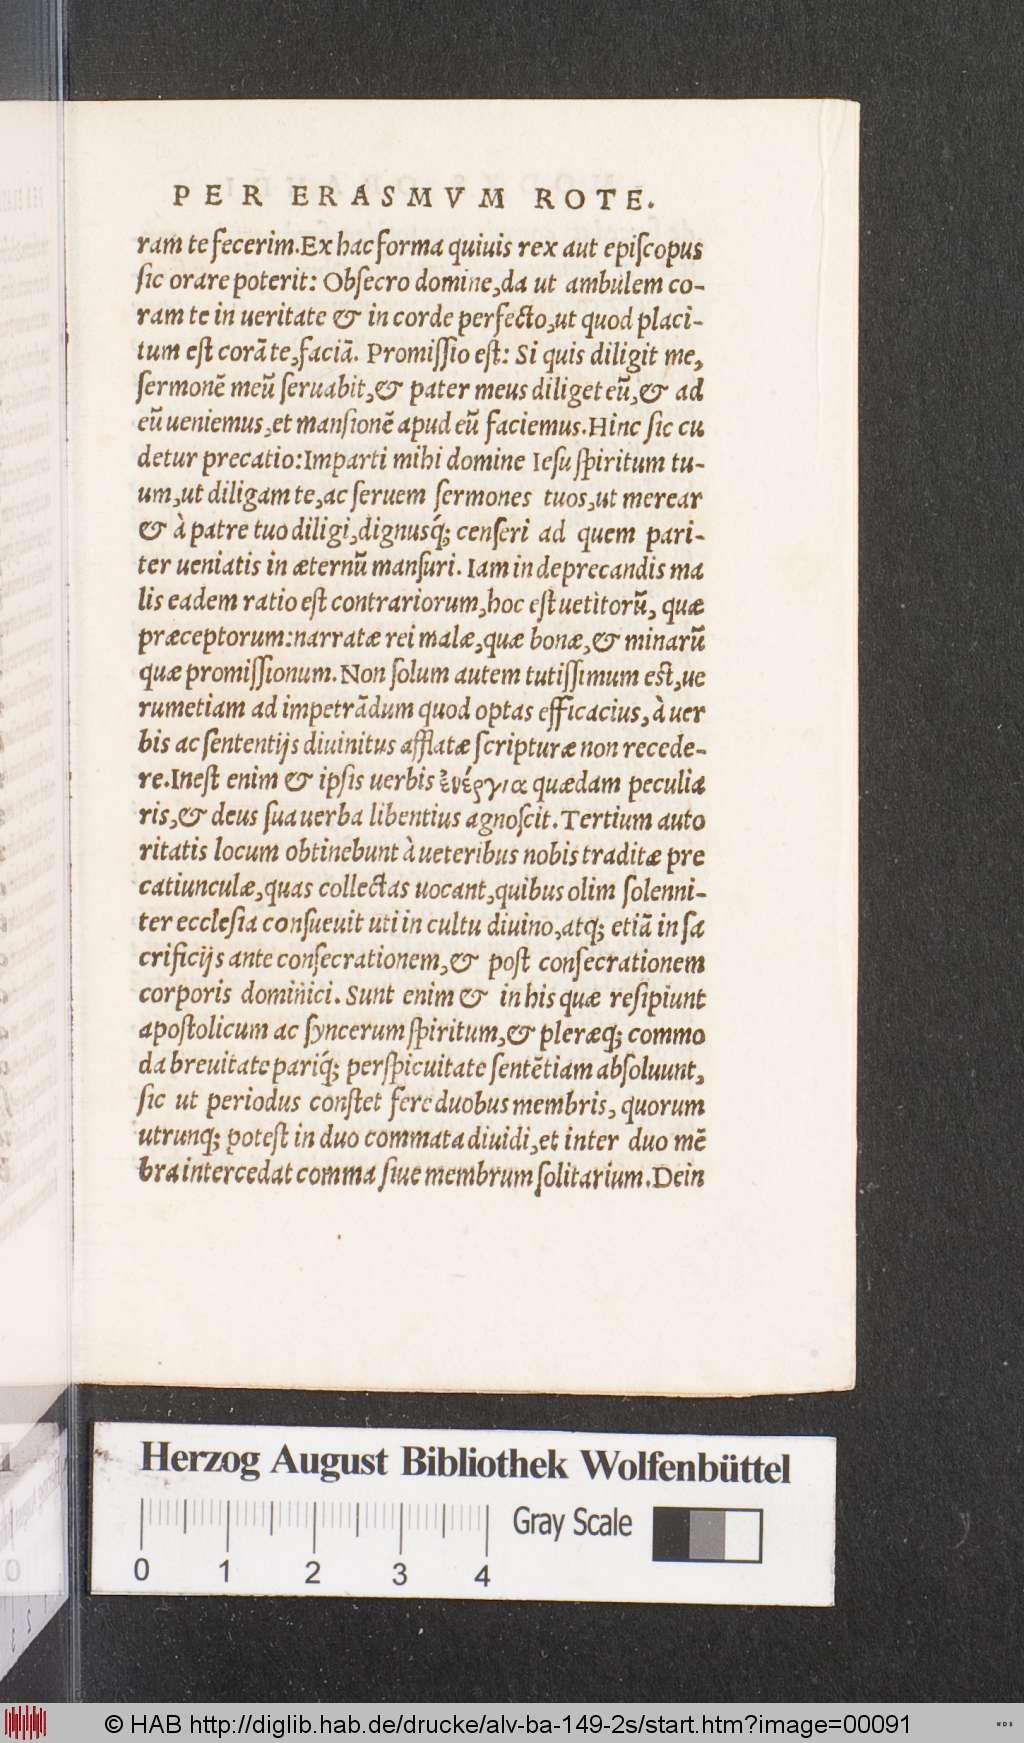 PER ERASMVM ROTE.
ram te fecerim. Ex hac forma quiuis rex aut episcopus
sic orare poterit: Obsecro domine, da ut ambulem co-
ram te in ueritate & in corde perfecto, ut quod placi-
tum est corā te, faciā. Promissio est: Si quis diligit me,
sermonē meū seruabit, & pater meus diliget eū, & ad
eū ueniemus, et mansionē apud eū faciemus. Hinc sic cu
detur precatio: Imparti mihi domine Iesu spiritum tu-
um, ut diligam te, ac seruem sermones tuos, ut merear
& à patre tuo diligi, dignusq́; censeri ad quem pari-
ter ueniatis in æternū mansuri. Iam in deprecandis ma
lis eadem ratio est contrariorum, hoc est uetitorū, quæ
præceptorum: narratæ rei malæ, quæ bonæ, & minarū
quæ promissionum. Non solum autem tutissimum est, ue
rumetiam ad impetrādum quod optas efficacius, à uer
bis ac sententijs diuinitus afflatæ scripturæ non recede-
re. Inest enim & ipsis uerbis ἐνέργια quædam peculia
ris, & deus sua uerba libentius agnoscit. Tertium auto
ritatis locum obtinebunt à ueteribus nobis traditæ pre
catiunculæ, quas collectas uocant, quibus olim solenni-
ter ecclesia consueuit uti in cultu diuino, atq; etiā in sa
crificijs ante consecrationem, & post consecrationem
corporis dominici. Sunt enim & in his quæ resipiunt
apostolicum ac syncerum spiritum, & pleræq; commo
da breuitate pariq́; perspicuitate sentētiam absoluunt,
sic ut periodus constet fere duobus membris, quorum
utrunq; potest in duo commata diuidi, et inter duo mē
bra intercedat comma siue membrum solitarium. Dein
Herzog August Bibliothek Wolfenbüttel
Gray Scale
0 1 2 3 4
© HAB http://diglib.hab.de/drucke/alv-ba-149-2s/start.htm?image=00091